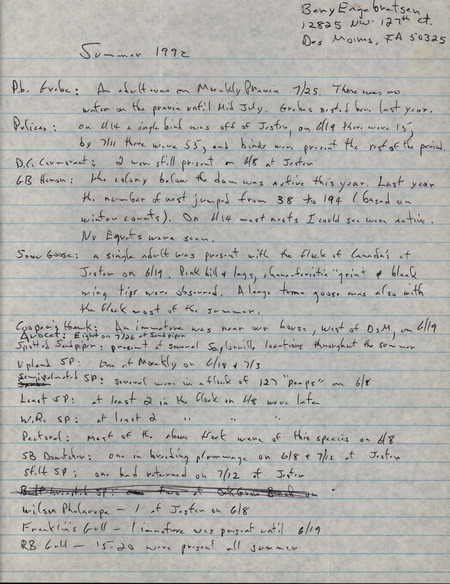 Bery Engebretsen
12825 NW. 127th Ct.
Des Moines, IA 50325
Summer 1992
P.b. Grebe: An adult was on Moeckly Prairie 7/25. There was no
water on the prairie until Mid July. Grebes nested here last year.
Pelican: on 6/14 a single bird was off of Jester, on 6/19 there were 15,
by 7/11 there were 55, and birds were present the rest of the period.
D.C. Cormorant: 2 were still present on 6/8 at Jester
GB Heron: the colony below the dam was active this year. Last year
the number of nest jumped from 38 to 194 (based on
winter counts). On 6/14 most nests I could see were active.
No Egrets were seen.
Snow Goose: a single adult was present with the flock of Canada's at
Jester on 6/19. Pink bill & legs, characteristic "grin" & black
wing tips were observed. A large tame goose was also with
the flock most of the summer.
Cooper's Hawk: An immature was near our house, west of DsM, on 6/19
Avocet: Eight on 7/26 at Sandpiper
Spotted Sandpiper: present at several Saylorville locations throughout the summer
Upland SP: One at Moeckly on 6/18 & 7/3
Semipalmated SP: several were in a flock of 127 "peeps" on 6/8
Least SP: at least 2 in the flock on 6/8 were later
W.R. SP: at least 2 " " "
Pectoral: Most of the above flock were of this species on 6/8
SB Dowitcher: one in breeding plummage on 6/8 & 7/12 at Jester
Stilt SP: one had returned on 7/12 at Jester
Buff breasted SP: two at Oak Grove Beach on
Wilson Phalarope - 1 at Jester on 6/8
Franklin's Gull - 1 immature was present until 6/19
RB Gull - 15-20 were present all summer